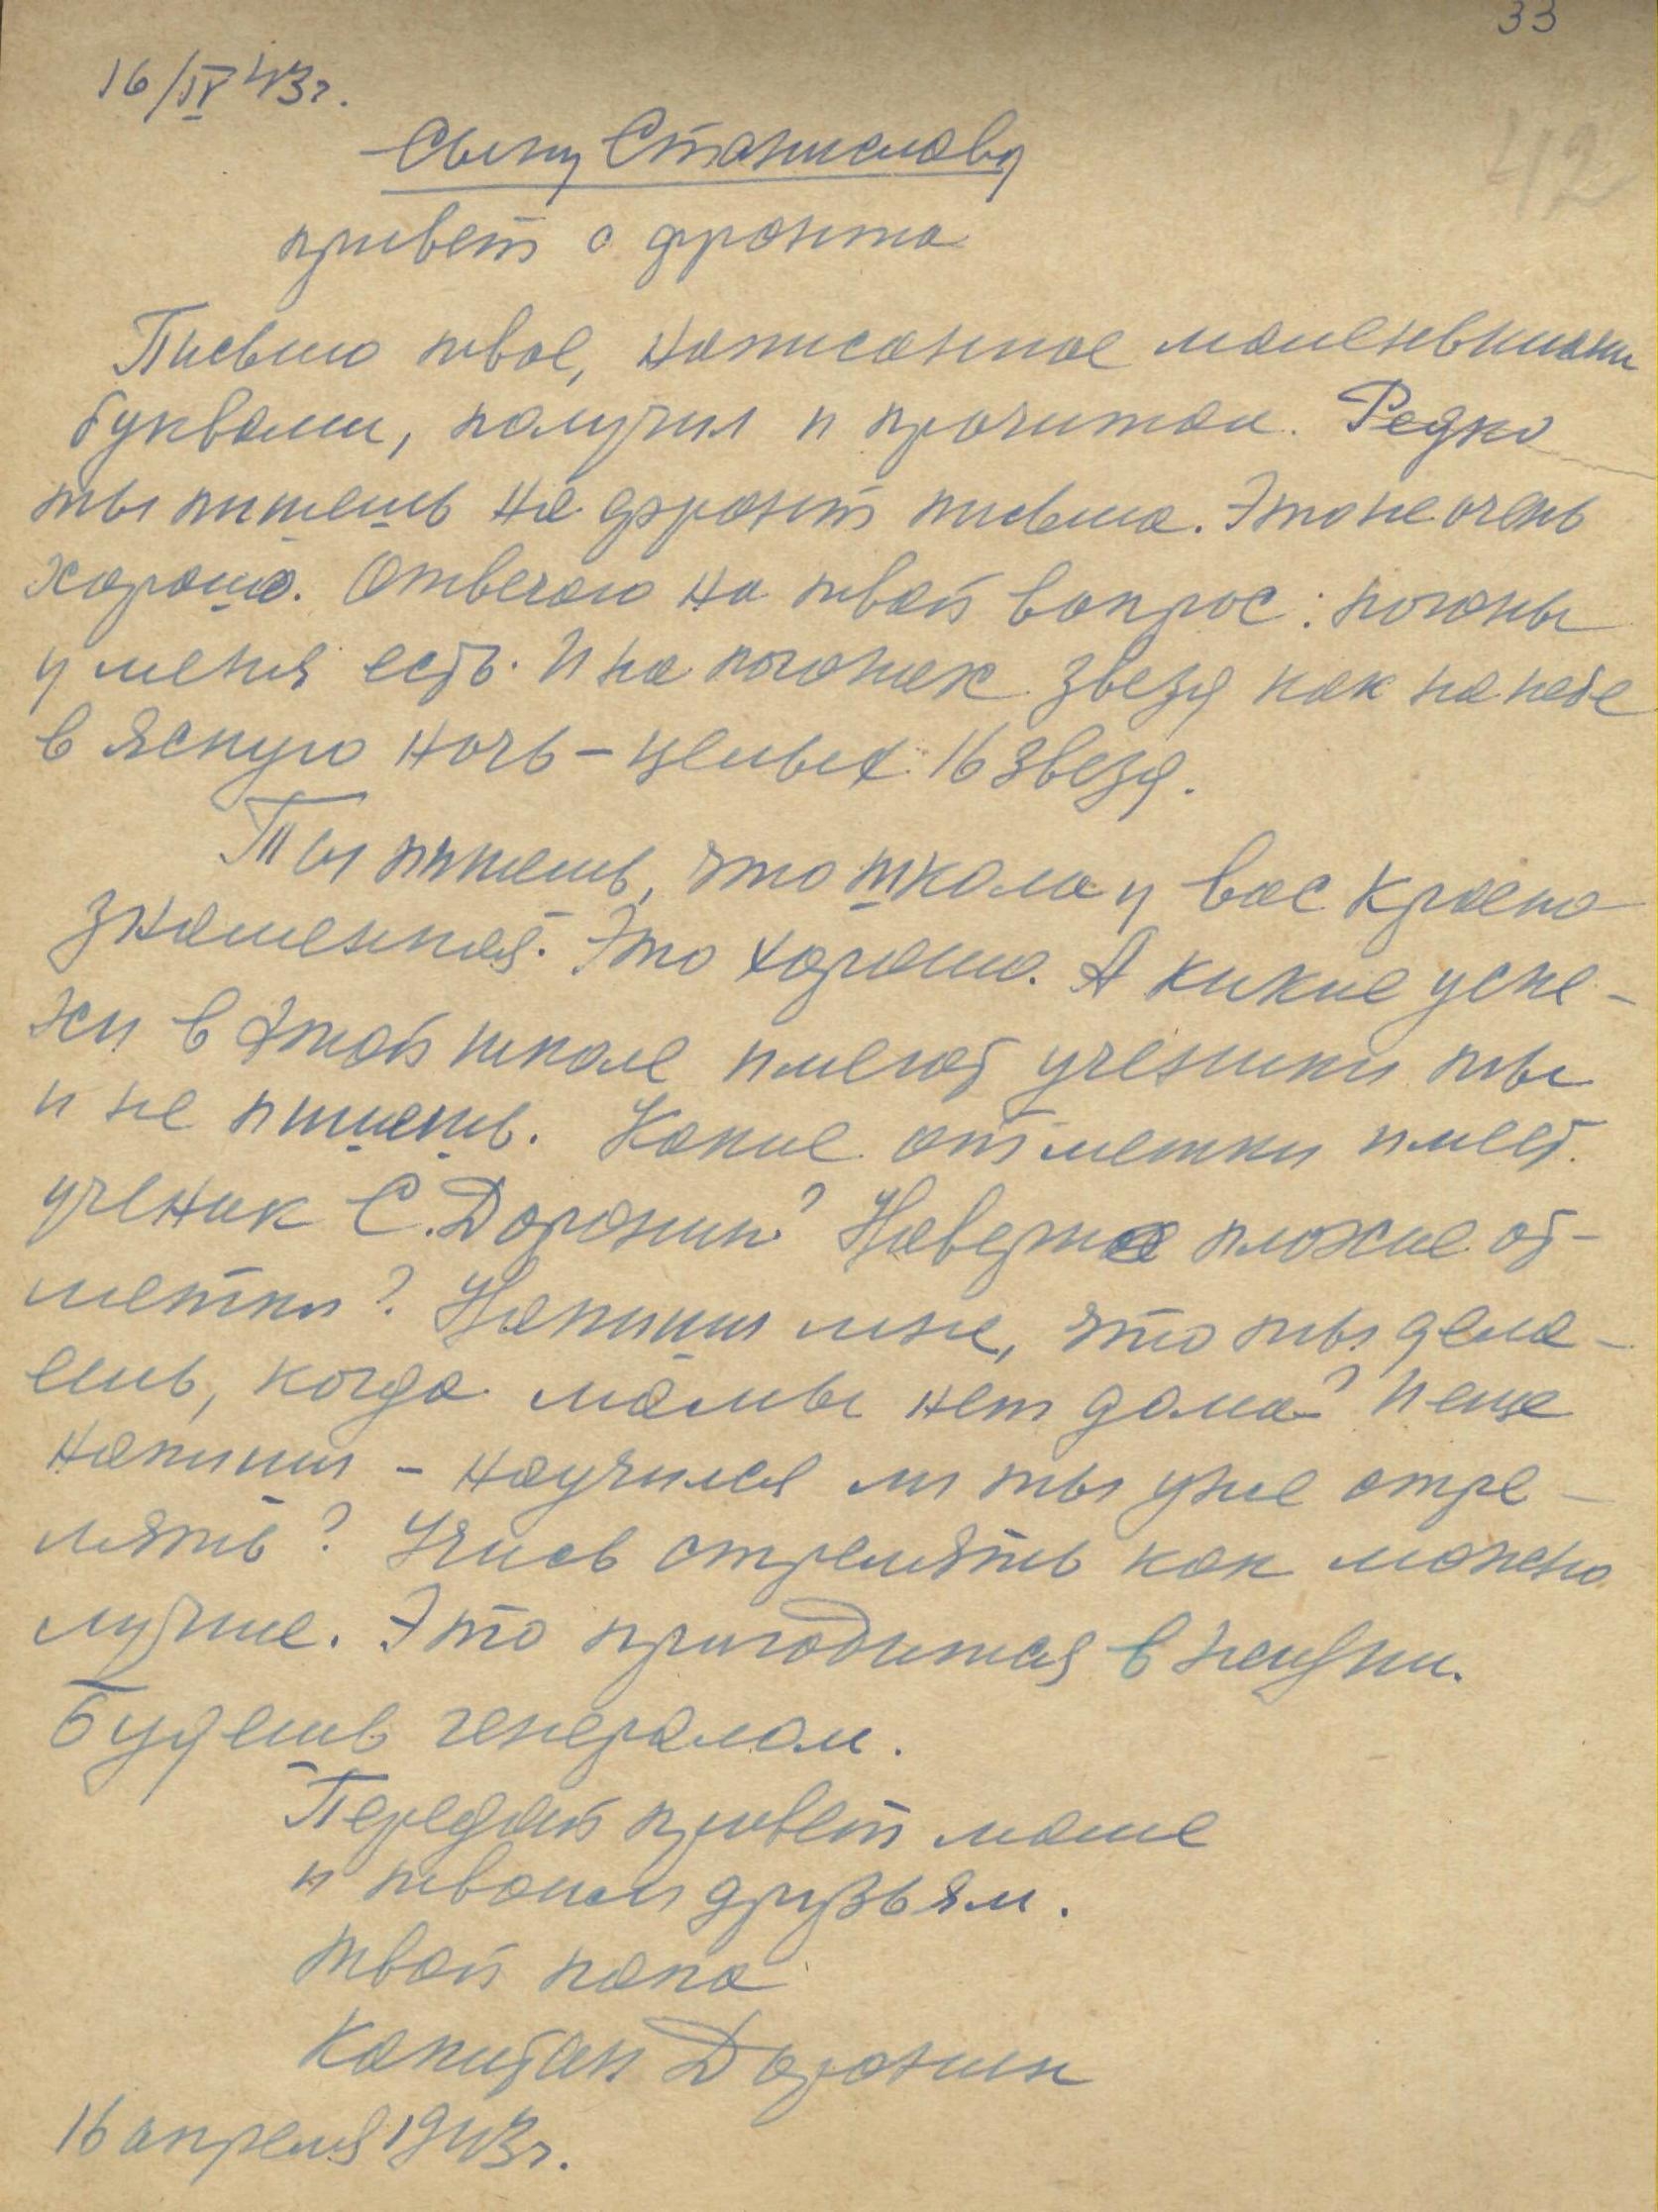 33
16/IV 43г.
42
Сыну Станиславу
привет с фронта
Письмо твое, написанное маленькими
буквами, получил и прочитал. Редко
ты пишешь на фронт письма. Это не очень
хорошо. Отвечаю на твой вопрос: погоны
у меня есть. И на погонах звезд как на небе
в ясную ночь – целых 16 звезд.
Ты пишешь, что школа у вас красно
знаменная. Это хорошо. А какие успе-
хи в этой школе имеют ученики ты
и не пишешь. Какие отметки имеет
ученик С. Доронин? Наверно плохие от-
метки? Напиши мне, что ты дела-
ешь, когда мамы нет дома? И еще
напиши – научился ли ты уже стре-
лять? Учись стрелять как можно
лучше. Это пригодится в жизни.
Будешь генералом.
Передай привет маме
и твоим друзьям.
Твой папа
Капитан Доронин
16 апреля 1943г.